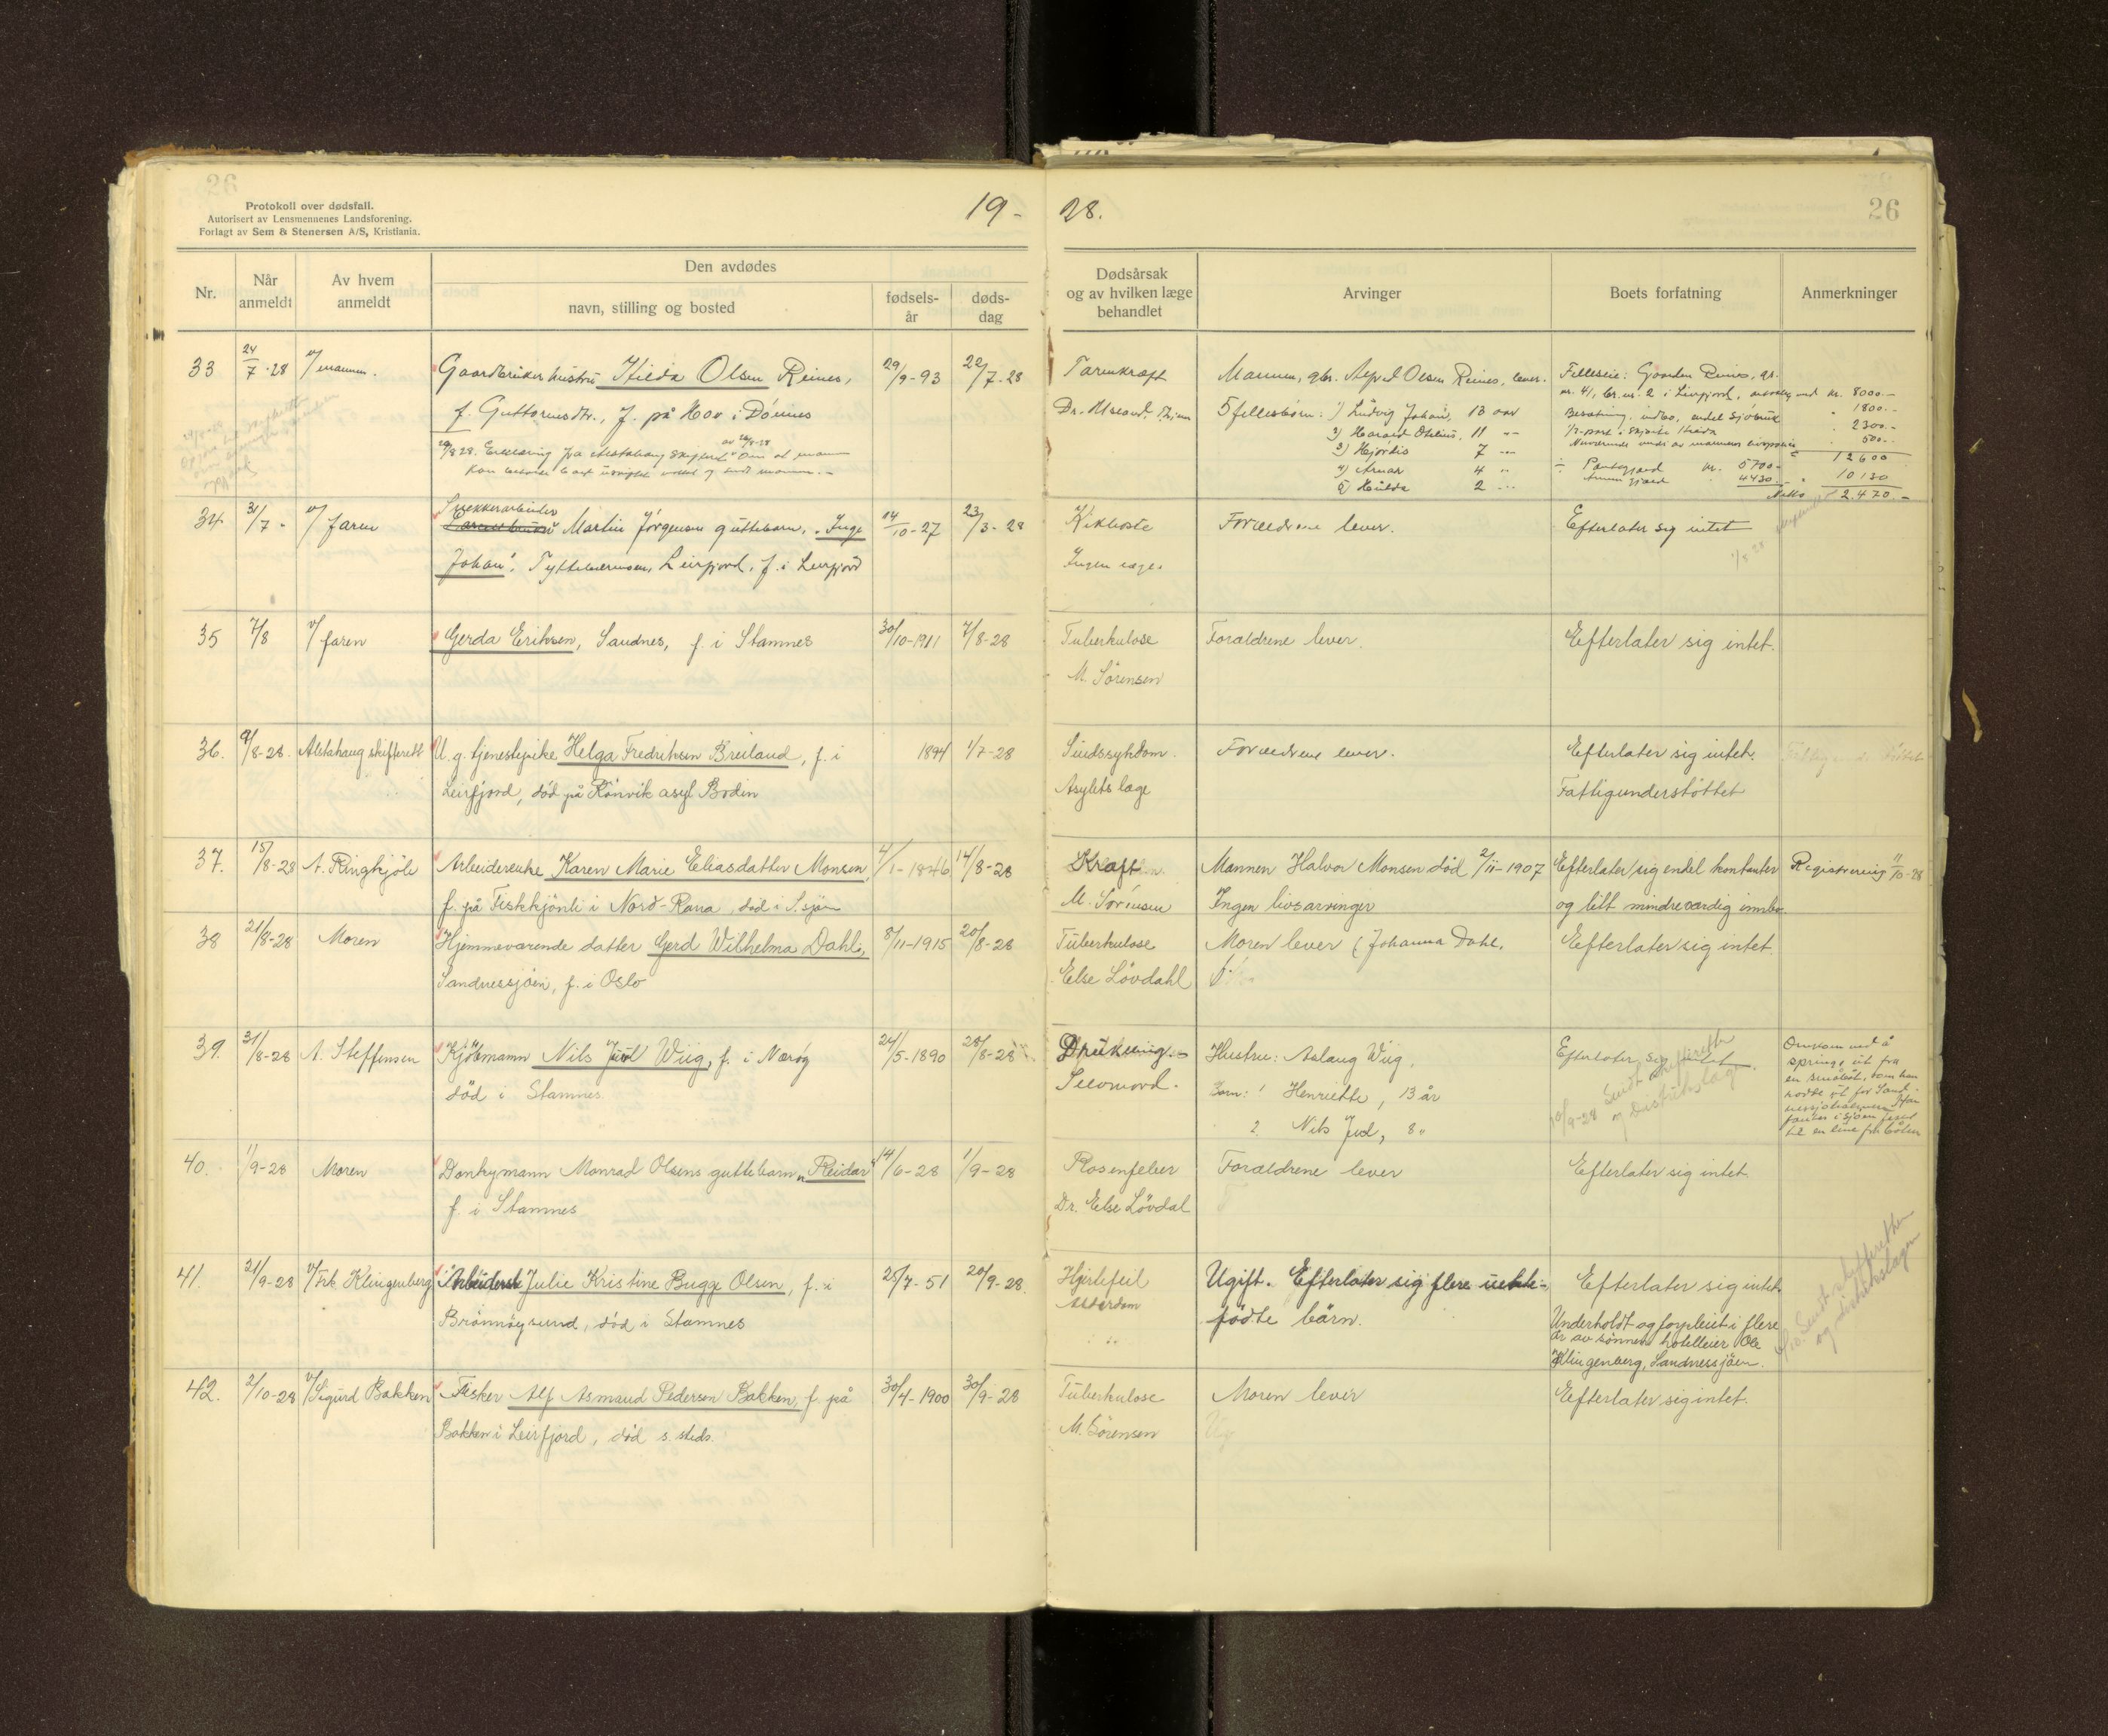 26
Protokoll over dødsfall.
Autorisert av Lensmennenes Landsforening.
Forlagt av Sem & Stenersen A/S, Kristiania.
19-
28.
26
Nr.
Når anmeldt
Av hvem anmeldt
Den avdødes
navn, stilling og bosted
fødselsår
dødsdag
Dødsårsak og av hvilken læge behandlet
Arvinger
Boets forfatning
Anmerkninger
33 24/7-28 v/ mannen. Gaardbruker hustru Hilda Olsen Reines, 29/9-93 22/7-28 Tarmkræft Mannen, gbr. Olsen Reines, lever. Felleseie: Gaarden Reines, gr.
f. Guttormsdtr., f. på Hov i Dönnes Dr. 5 fellesbørn: 1) Ludvig Johan, 13 aar nr. 41, br.nr. 2 i Leirfjord, kr. 8000.-
2) Harald 11 -"- Besætning, indbo, endel sjöbruk " 1800.-
3) Hjørdis 7 -"- 1/2-part i 2300.-
4) Arnar 4 " 500.-
5) Hilda 2 -"- 12600
÷ Pantegjæld kr. 5700.-
4430.- 10130
Netto 2.470.-
34 31/7- v/ faren Martin Jörgensens guttebarn, "Inge 14/10-27 23/3-28 Kikhoste Forældrene lever. Efterlater sig intet
Johan". Leirfjord, f. i Leirfjord Ingen læge.
35 7/8 v/ faren Gerda Eriksen, Sandnes, f. i Stamnes 30/10-1911 7/8-28 Tuberkulose Forældrene lever. Efterlater sig intet.
M. Sörensen
36. 9/8-28. Alstahaug skifterett U. g. tjenestepike Helga Fredriksen Breiland, f. i 1894 1/7-28 Sindssykdom. Forældrene lever. Efterlater sig intet.
Leirfjord, död på Rönvik asyl Bodin Asylets læge Fattigunderstöttet
37. 15/8-28 A. Ringkjöb Arbeiderenke Karen Marie Eliasdatter Monsen, 4/1-1846 14/8-28 Kræft Mannen Halvor Monsen död 2/11-1907 Efterlater sig endel kontanter Registrering 11/10-28
f. på Fiskkjönli i Nord-Rana, död i S.sjöen M. Sörensen Ingen livsarvinger og litt mindreværdig innbo.
38 21/8-28 Moren Hjemmeværende datter Gerd Wilhelma Dahl, 8/11-1915 20/8-28 Tuberkulose Moren lever (Johanna Dahl. Efterlater sig intet.
Sandnessjöen, f. i Oslo Else Lövdahl
39. 31/8-28 A. Steffensen Kjöbmann Nils Juul Wiig, f. i Næröy 24/5-1890 28/8-28 Drukning.- Hustru: Aslaug Wiig, Efterlater sig intet.
död i Stamnes Selvmord. Barn: 1 Henriette, 13 år
2 Nils Juul, 8 "
10/9-28 Sendt skifterett og Distriktslæge
Omkom ved å springe ut fra en småbåt, som han rodde ut for Sandnessjöen. Han fantes i sjöen fæstet til en line fra båten
40. 1/9-28 Moren Donkymann Monrad Olsens guttebarn "Reidar" 14/6-28 1/9-28 Rosenfeber Forældrene lever Efterlater sig intet.
f. i Stamnes Dr. Else Lövdal
41. 21/9-28 v/Frk Klingenberg Julie Kristine Bugge Olsen, f. i 25/7-51 20/9-28. Hjertefeil Ugift. Efterlater sig flere uekte- Efterlater sig intet.
Brönnöysund, död i Stamnes Alderdom fødte børn. Underholdt og forpleiet i flere
år av sönnen hotelleier Ole
Klingenberg, Sandnessjöen.
Sendt skifteretten og distriktslægen
42. 2/10-28 v/Sigurd Bakken Fisker Alf Asmund Pedersen Bakken, f. på 30/4-1900 30/9-28 Tuberkulose Moren lever Efterlater sig intet.
Bakken i Leirfjord, död s. steds. M. Sörensen